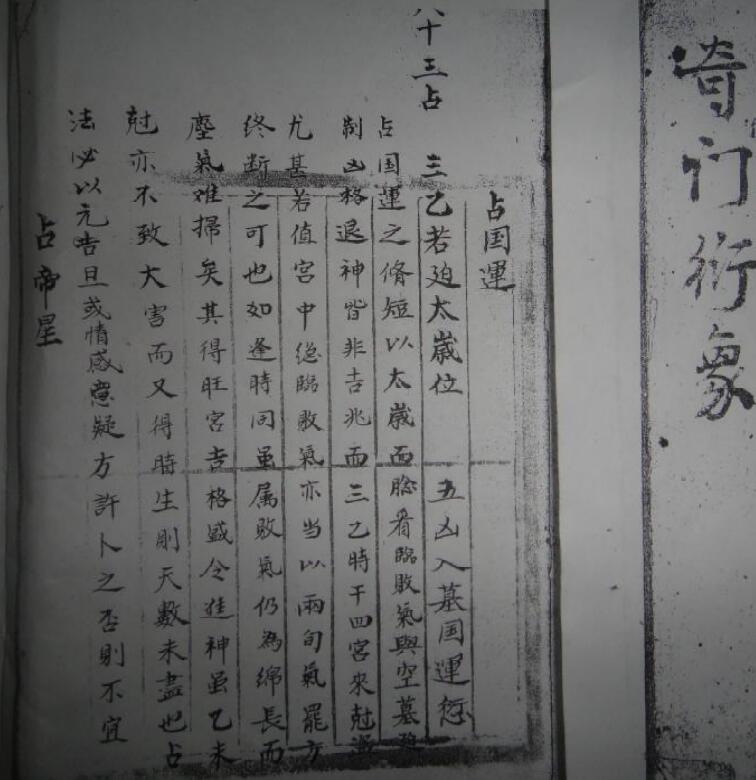 奇门衍象
占国運
八十三占 三乙若廹太嵗位 五凶入墓国運愆
占国運之脩短以太嵗而看臨敗氣與空墓廹
制凶格退神皆非吉兆而三乙時干四宫來尅
尤甚若值宫中縂臨敗氣亦当以兩旬氣罷方
终断之可也如逢時同虽属敗氣仍為绵長而
塵氣难掃矣其得旺宫吉格盛令進神虽乙未
尅亦不致大害而又得時生則天數未盡也占
法必以元吉旦或情感意疑方許卜之否則不宜
占帝星